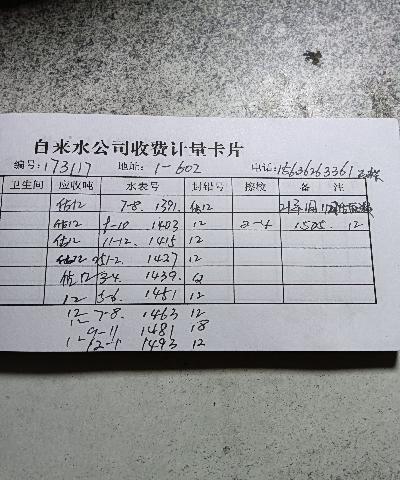 自来水公司收费计量卡片
编号:173117 地址:1-602 电话:15636263361
卫生间 应收吨 水表号 封铅号 擦校 备注
估12 7-8. 1391. 估12 21年1月
估12 9-10 1403 12 2-4 1505. 12
估12 11-12. 1415 12
估12 1-2. 1427 12
估12 3-4. 1439. 12
12 5-6. 1451 12
12 7-8. 1463 12
12 9-11 1481 18
12 12-1 1493 12